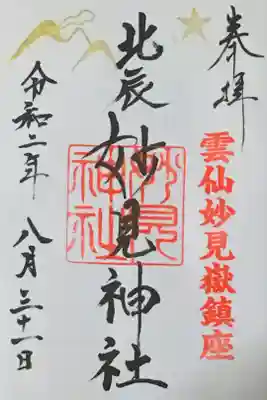 奉拝
雲仙妙見嶽鎮座
北辰妙見神社
妙見神社
令和二年八月三十一日